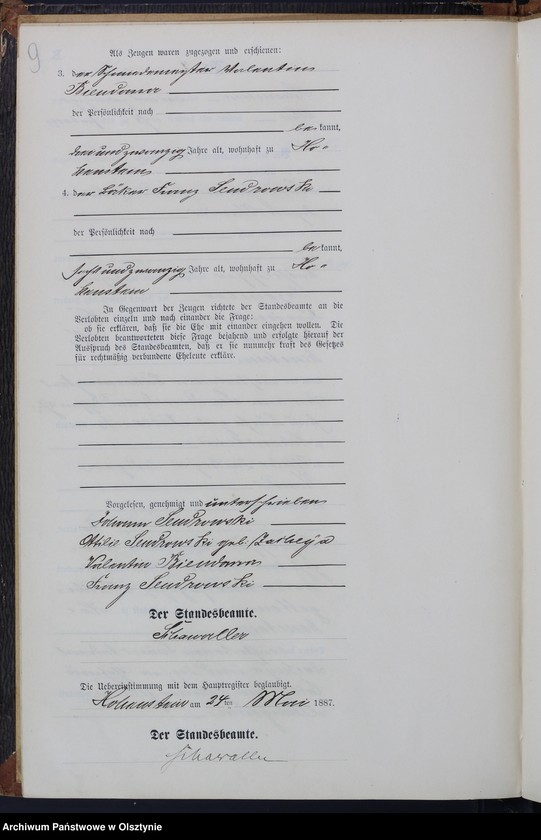 9
Als Zeugen waren zugezogen und erschienen:
3. der Schmiedemeister Valentin
Biendara
der Persönlichkeit nach
be kannt,
dreiundzwanzig Jahre alt, wohnhaft zu Ho-
henstein
4. der Bäcker Franz Sendrowski
der Persönlichkeit nach
be kannt,
sechsundzwanzig Jahre alt, wohnhaft zu Ho-
henstein
In Gegenwart der Zeugen richtete der Standesbeamte an die
Verlobten einzeln und nach einander die Frage:
ob sie erklären, daß sie die Ehe mit einander eingehen wollen. Die
Verlobten beantworteten diese Frage bejahend und erfolgte hierauf der
Ausspruch des Standesbeamten, daß er sie nunmehr kraft des Gesetzes
für rechtmäßig verbundene Eheleute erkläre.
Vorgelesen, genehmigt und unterschrieben
Johann Sendrowski
Ottilie Sendrowski geb.
Valentin Biendara
Franz Sendrowski
Der Standesbeamte.
Schawaller
Die Uebereinstimmung mit dem Hauptregister beglaubigt.
Hohenstein am 24 ten Mai 1887.
Der Standesbeamte.
Schawaller
Archiwum Państwowe w Olsztynie